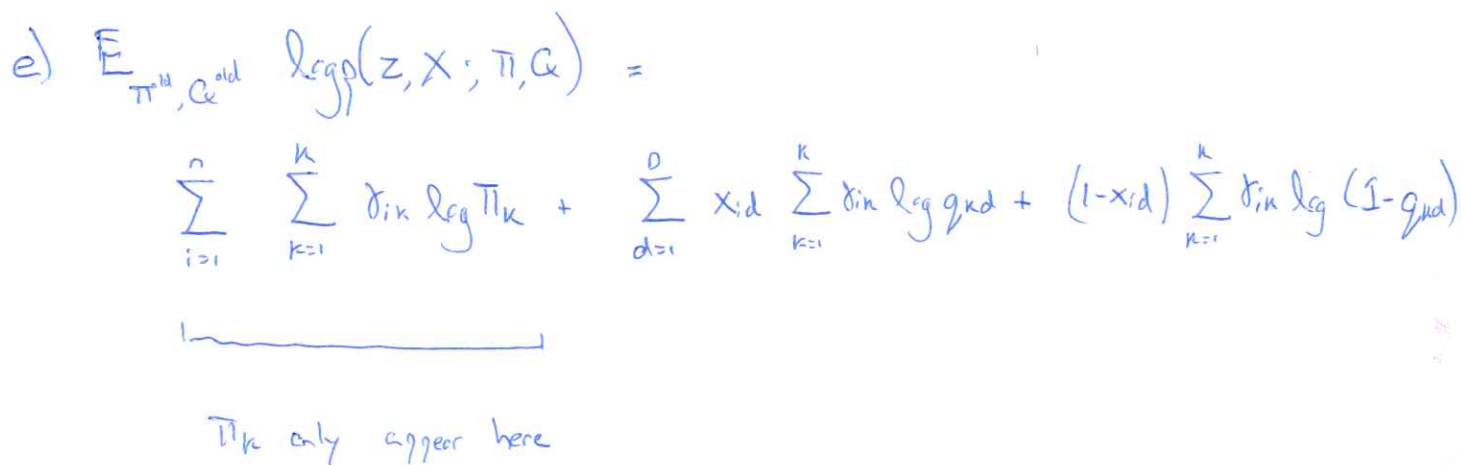 e) E_{π^{old}, Q^{old}} log p(z, X; π, Q) =
\sum_{i=1}^{n} \sum_{k=1}^{K} γ_{ik} log π_k + \sum_{d=1}^{D} x_{id} \sum_{k=1}^{K} γ_{ik} log q_{kd} + (1-x_{id}) \sum_{k=1}^{K} γ_{ik} log (1-q_{kd})
π_k only appear here